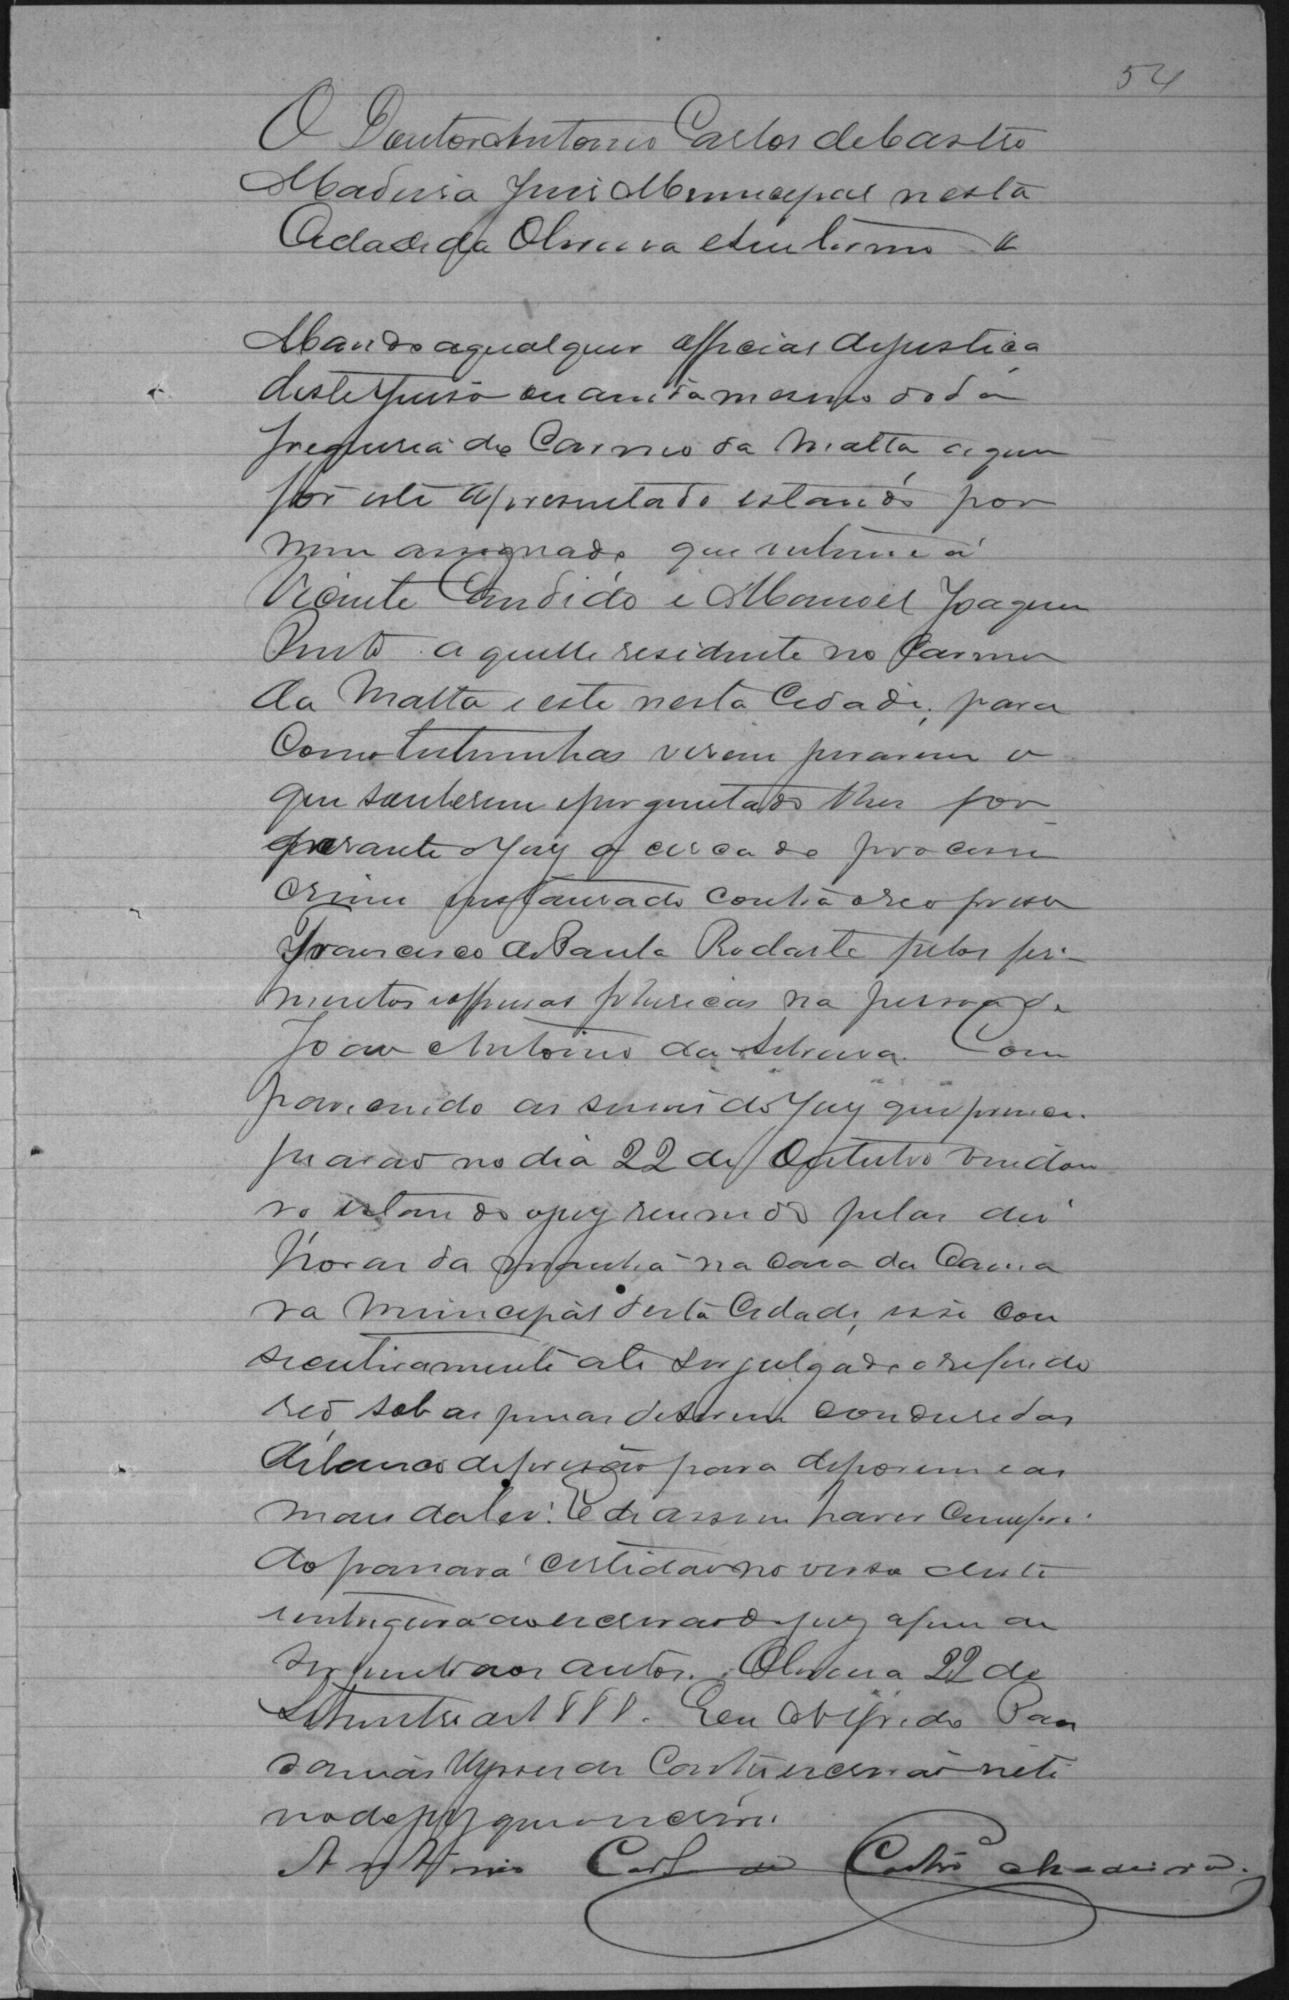 54
O Doutor Antonio Carlos de Castro
Madeira Juis Municipal nesta
Cidade da Oliveira e seu termo &
Mando a qualquer official de justiça
deste juiso ou ainda mesmo do da
freguesia do Carmo da Matta a quem
for este apresentado estando por
mim assignado que intime á
Vicente Candido e Manoel Joaquim
Pinto aquelle residente no Carmo
da Matta e este nesta Cidade, para
Como testemunhas virem jurarem o
que souberem e perguntado lhes for
perante o Juiz a cerca do processo
crime instaurado contra o reo preso
Francisco de Paula Rodarte pelos feri
mentos e offensas phisicas na pessoa de
Joao Antonio da Silveira. Com
parecendo as do Jury que princi
piarão no dia 22 de Outubro vindou
ro estando o jury reunido pelas dés
horas da manhã na casa da Cama
ra Municipal desta Cidade, e assi con
secutivamente até ser julgado o referido
reo sob as penas de serem condusidas
debaixo de prisão para deporem e as
mais da lei. E de assim haver cumpri
do passará certidão no verso deste
e entregará ao escrivão do jury afim de
ser junto aos autos. Oliveira 22 de
Setembro de 1888. Eu Alfredo
de Castro escrivão inte
rino do jury que o escrevi.
Antonio Carlos de Castro Madeira.